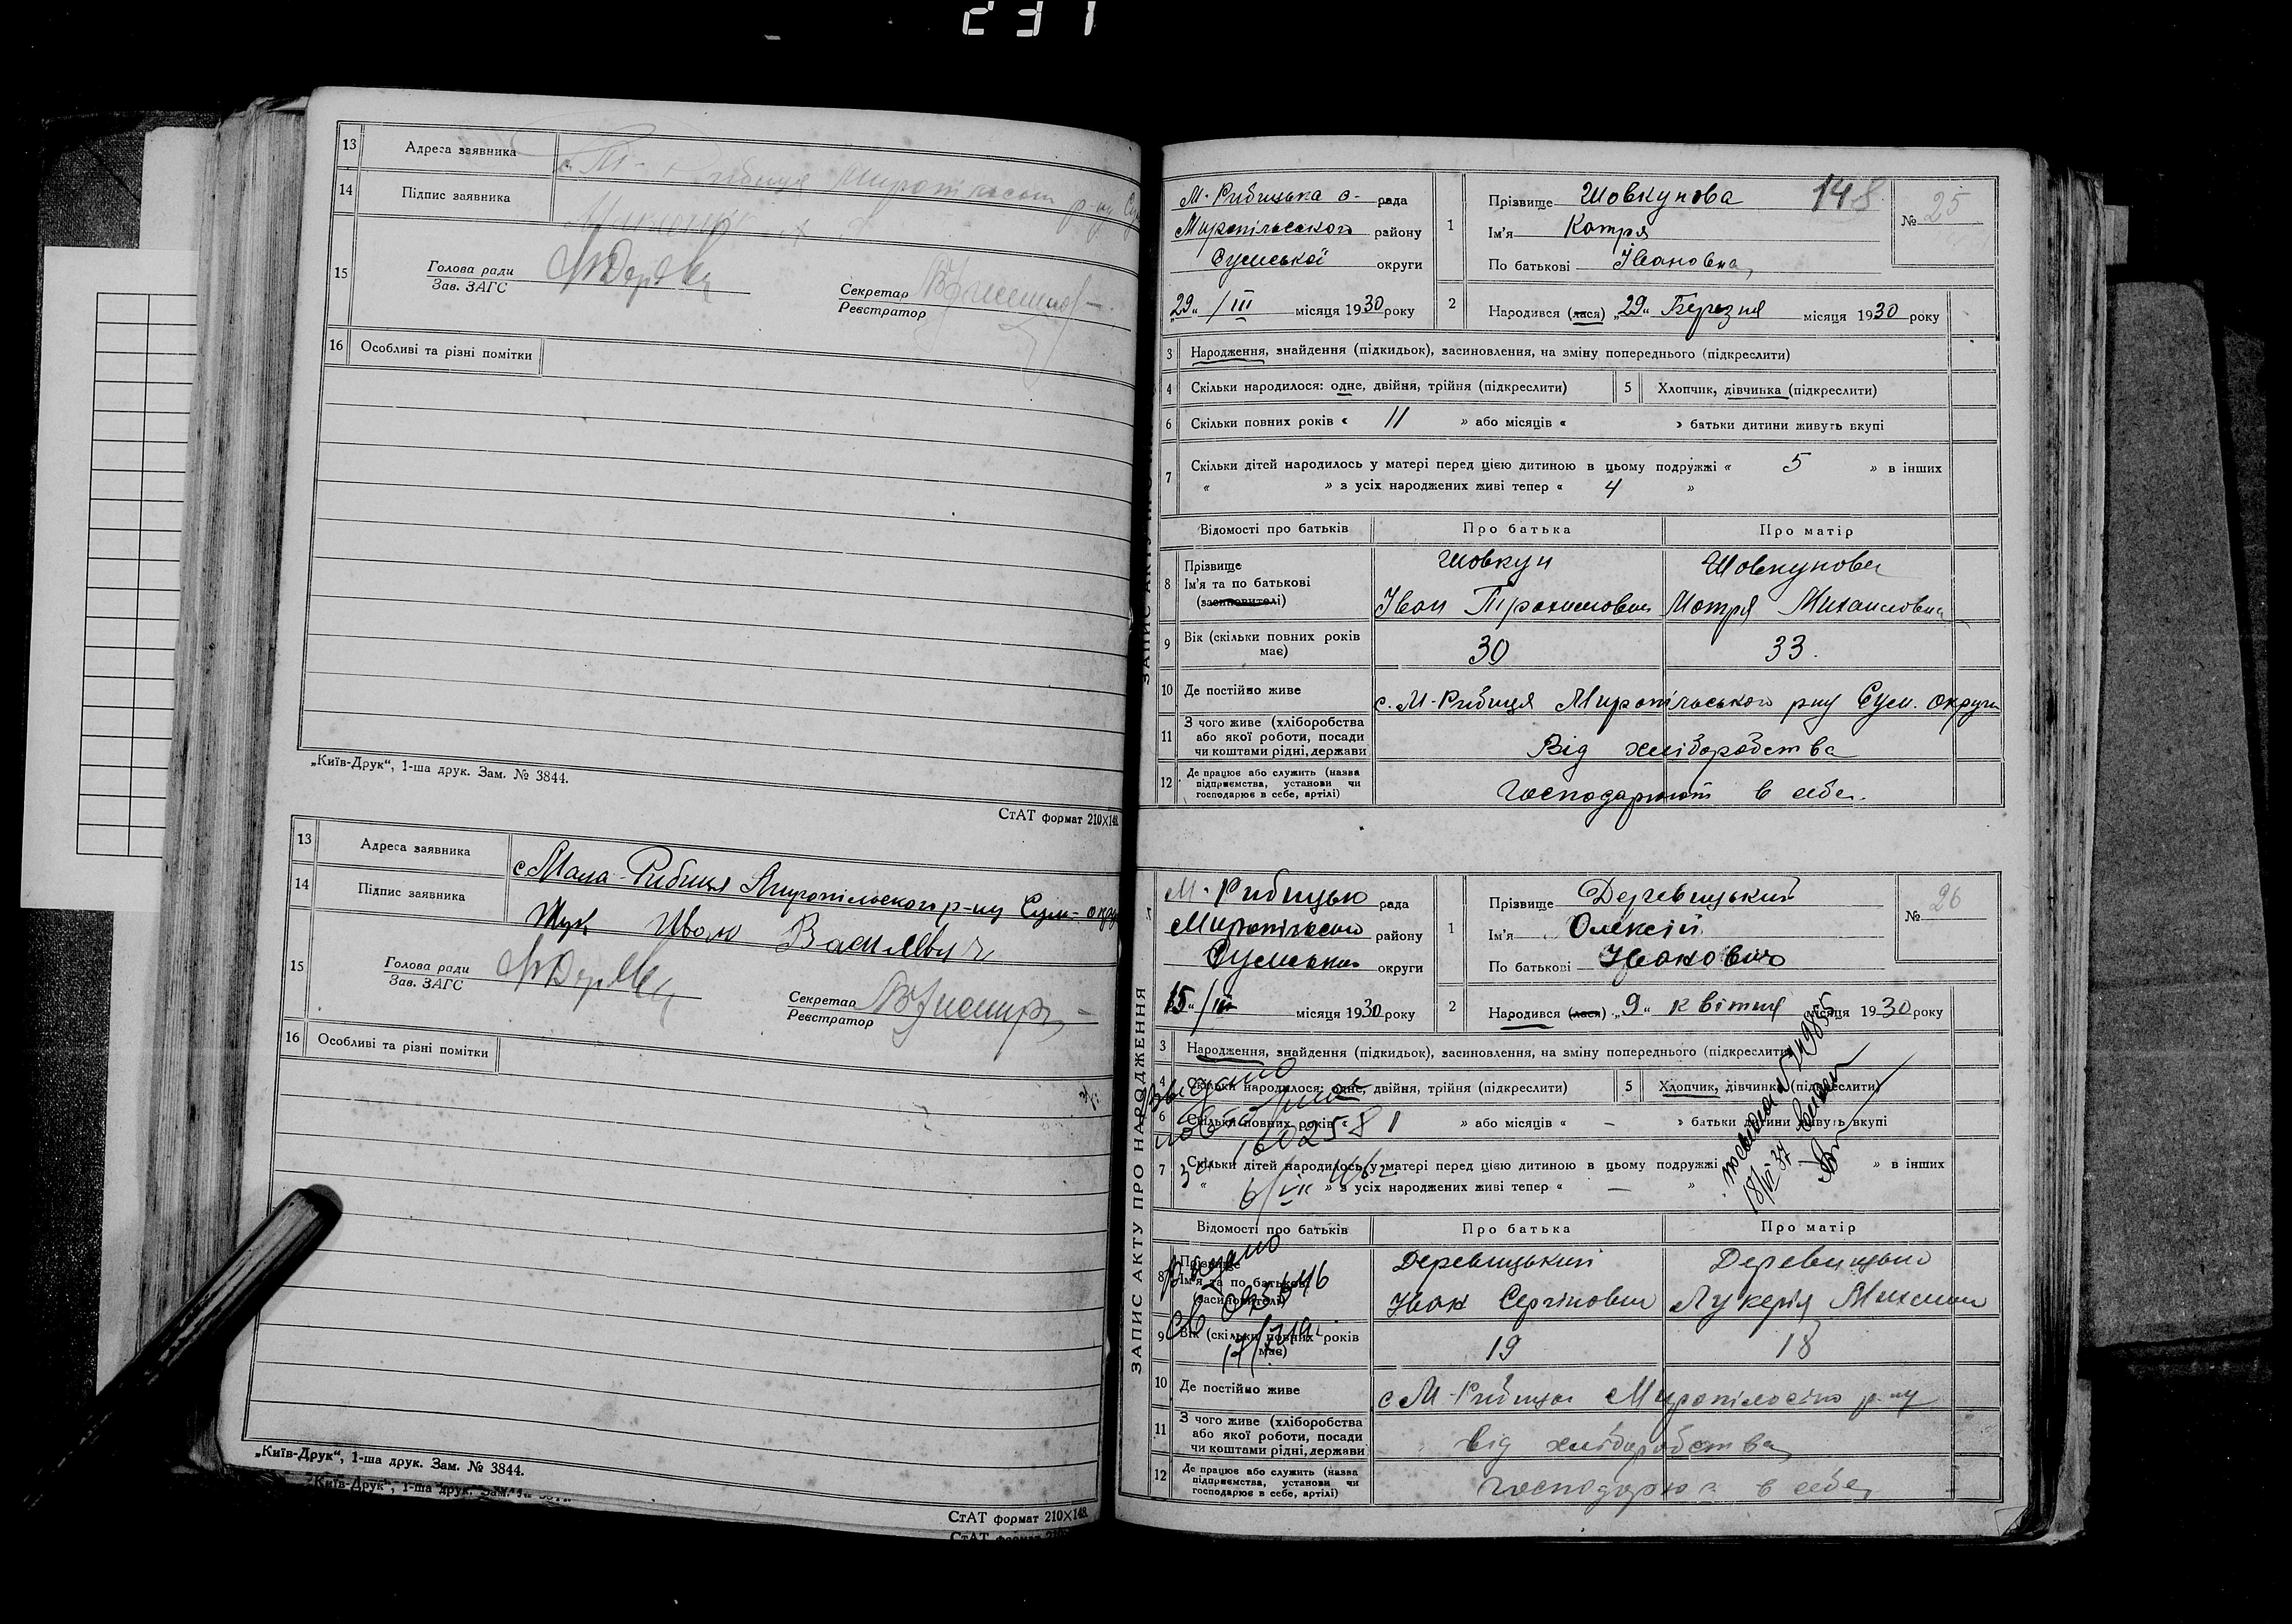 231
13 Адреса заявника с. М- Рибиця Миропільськ р-ну Сум
14 Підпис заявника
15 Голова ради
Зав. ЗАГС
Секретар
Реєстратор
16 Особливі та різні помітки
„Київ-Друк“, 1-ша друк. Зам. № 3844.
СтАТ формат 210×148.
13 Адреса заявника с Мала-Рибиця Миропільского р-ну Сум- окру
14 Підпис заявника Жук Иван Василевич
15 Голова ради
Зав. ЗАГС
Секретар
Реєстратор
16 Особливі та різні помітки
„Київ-Друк“, 1-ша друк. Зам. № 3844.
„Київ-Друк“, 1-ша друк. Зам.
СтАТ формат 210×148.
СтАТ формат
М-Рибицька с- рада
Миропільського району
Сумської округи
„29“ /III місяця 1930 року
1 Прізвище Шовкунова 148
Ім'я Котря
По батькові Івановна
№ 25
2 Народився (лася) „29“ Березня місяця 1930 року
3 Народження, знайдення (підкидьок), засиновлення, на зміну попереднього (підкреслити)
4 Скільки народилося: одне, двійня, трійня (підкреслити) 5 Хлопчик, дівчинка (підкреслити)
6 Скільки повних років « 11 » або місяців « » батьки дитини живуть вкупі
7 Скільки дітей народилось у матері перед цією дитиною в цьому подружжі « 5 » в інших
« » з усіх народжених живі тепер « 4 »
Відомості про батьків Про батька Про матір
8 Прізвище Шовкун Шовкунова
Ім'я та по батькові
(засиновителі) Іван Мотря
9 Вік (скільки повних років має) 30 33.
10 Де постійно живе с. М-Рибиця Миропільського р-ну Сум. округи
11 З чого живе (хліборобства
або якої роботи, посади
чи коштами рідні, держави Від хліборобства
12 Де працює або служить (назва
підприємства, установи чи
господарює в себе, артілі) Господарюют в себе.
ЗАПИС АКТУ ПРО НАРОДЖЕННЯ
М-Рибицько рада
Миропільськ району
Сумської округи
„15“ місяця 1930 року
1 Прізвище Деревицький
Ім'я Олексій
По батькові Іванович
№ 26
2 Народився (лася) „9“ квітня місяця 1930 року
3 Народження, знайдення (підкидьок), засиновлення, на зміну попереднього (підкреслити)
4 Скільки народилося: одне, двійня, трійня (підкреслити) 5 Хлопчик, дівчинка (підкреслити)
6 Скільки повних років « 1 » або місяців « – » батьки дитини живуть вкупі
7 Скільки дітей народилось у матері перед цією дитиною в цьому подружжі » в інших
« » з усіх народжених живі тепер « — »
Відомості про батьків Про батька Про матір
8 Прізвище Деревицький Деревицько
Ім'я та по батькові
(засиновителі) Іван Сергійович Лукерія
9 Вік (скільки повних років має) 19 18
10 Де постійно живе с М-Рибиця р-ну
11 З чого живе (хліборобства
або якої роботи, посади
чи коштами рідні, держави від хліборобства
12 Де працює або служить (назва
підприємства, установи чи
господарює в себе, артілі) в себе